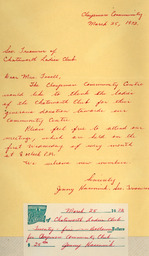 Claypoon Community
March 25, 1972
Sec. Treasurer of
Chatsworth Ladies Club
Dear Mrs. Tovell,
The Claypoon Community Centre
would like to thank the ladies
of the Chatsworth Club for their
generous donation towards our
Community Centre.
Please feel free to attend our
meetings, which are held on the
first Wednesday of every month
at 8 o'clock P.M.
We welcome new members
Sincerely
Sec. Treasurer
March 25 19
of Chatsworth Ladies Club
Twenty-five — Dollars
for Claypoon Community Club
$ 25